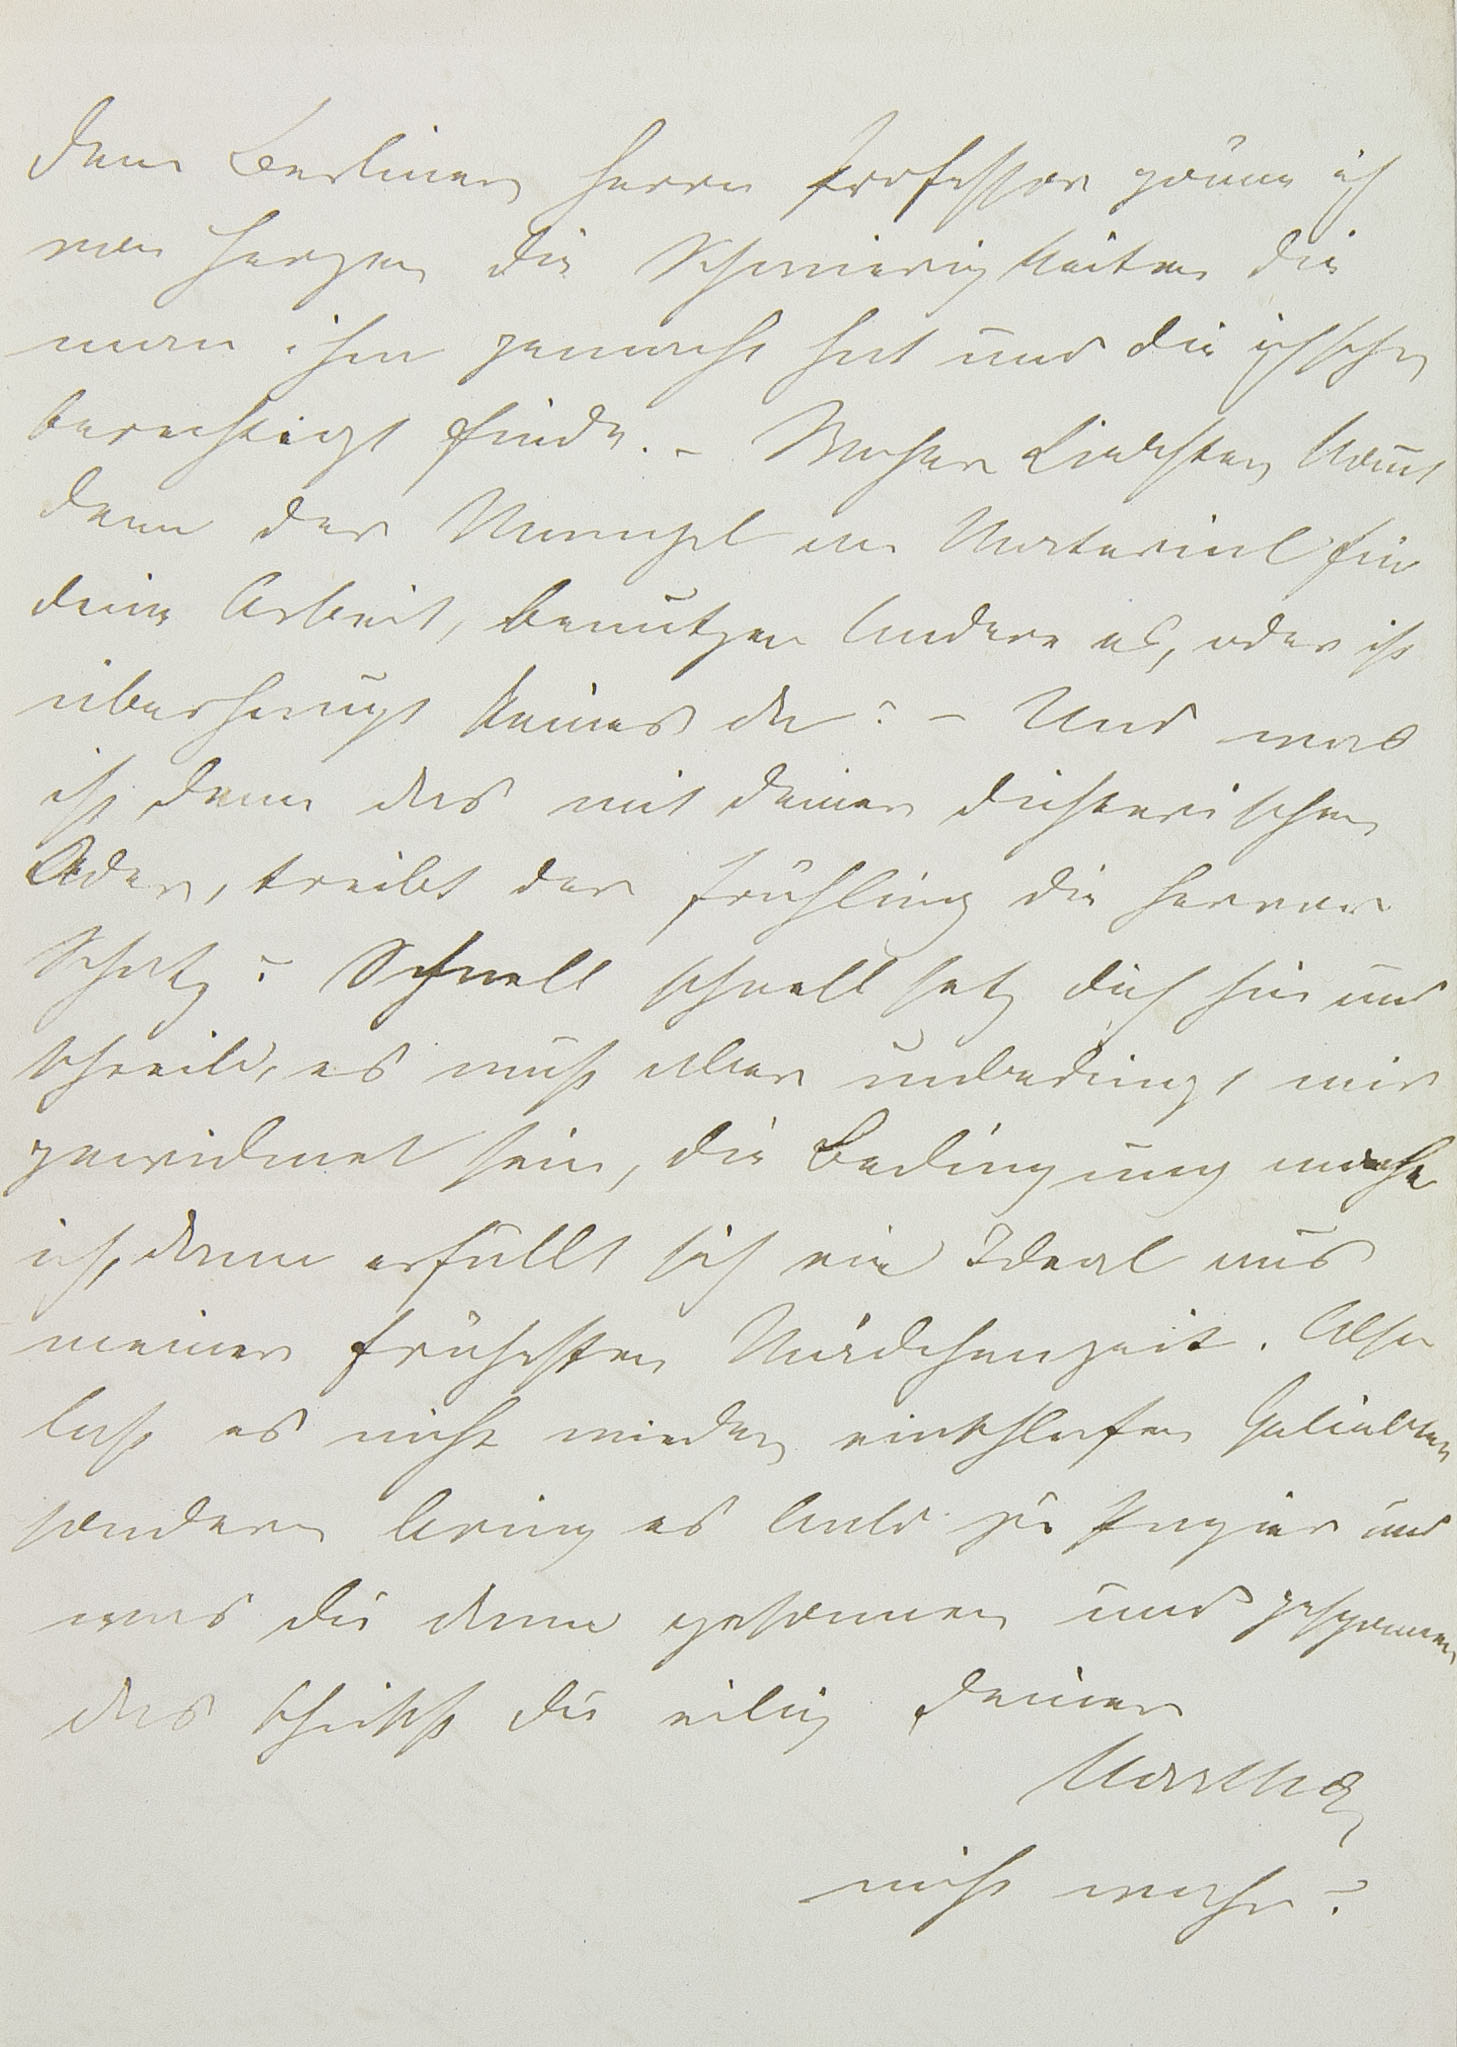 Dem Berliner Herrn Professor gönne ich
von Herzen die Schwierigkeiten die
man ihm gemacht hat und die ich sehr
berechtigt finde. – Woher Liebster kom̅t
denn der Mangel an Material für
deine Arbeit, benutzen Andere es, oder ist
überhaupt keines da? – Und was
ist denn das mit deiner dichterischen
Ader, treibt der Frühling die hervor
Schatz? Schnell schnell setz dich hin und
schreib, es muß aber unbedingt mir
gewidmet sein, die Bedingung mache
ich, dann erfüllt sich ein Ideal aus
meiner frühesten Mädchenzeit. Also
laß es nicht wieder einschlafen Geliebter
sondern bring es bald zu Papier und
was du dann gesonnen und gesponnen
das schickst du eilig deiner
Martha
nicht wahr?